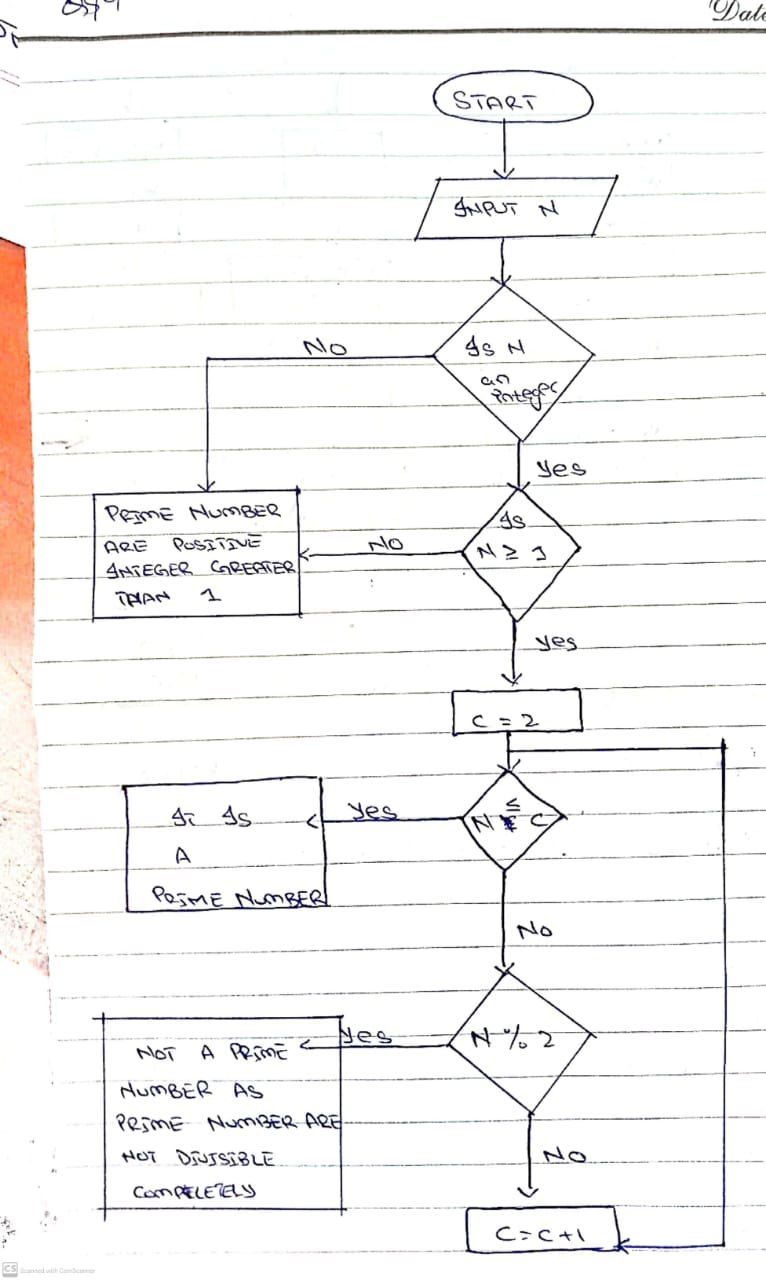 Date
START
INPUT N
Is N
an
integer
NO
yes
PRIME NUMBER
ARE POSITIVE
INTEGER GREATER
THAN 1
NO
Is
N ≥ 1
yes
C = 2
IT IS
A
PRIME NUMBER
yes
≤
N C
NO
NOT A PRIME
NUMBER AS
PRIME NUMBER ARE
NOT DIVISIBLE
COMPELETELY
yes
N % 2
NO
C = C + 1
CS Scanned with CamScanner